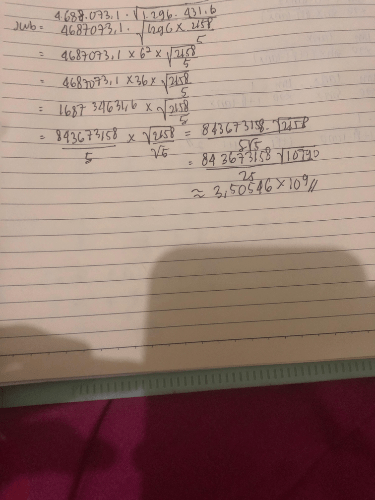 4688.073,1 . √1.296 . 431,6
Jwb = 4687073,1 . √1296 × 2158/5
= 4687073,1 × 6² × √2158/5
= 4687073,1 × 36 × √2158/5
= 168734631,6 × √2158/5
= 843673158/5 × √2158/√5 = 843673158 . √2158/5√5
= 843673158 √10790/25
≈ 3,50546 × 10⁹//